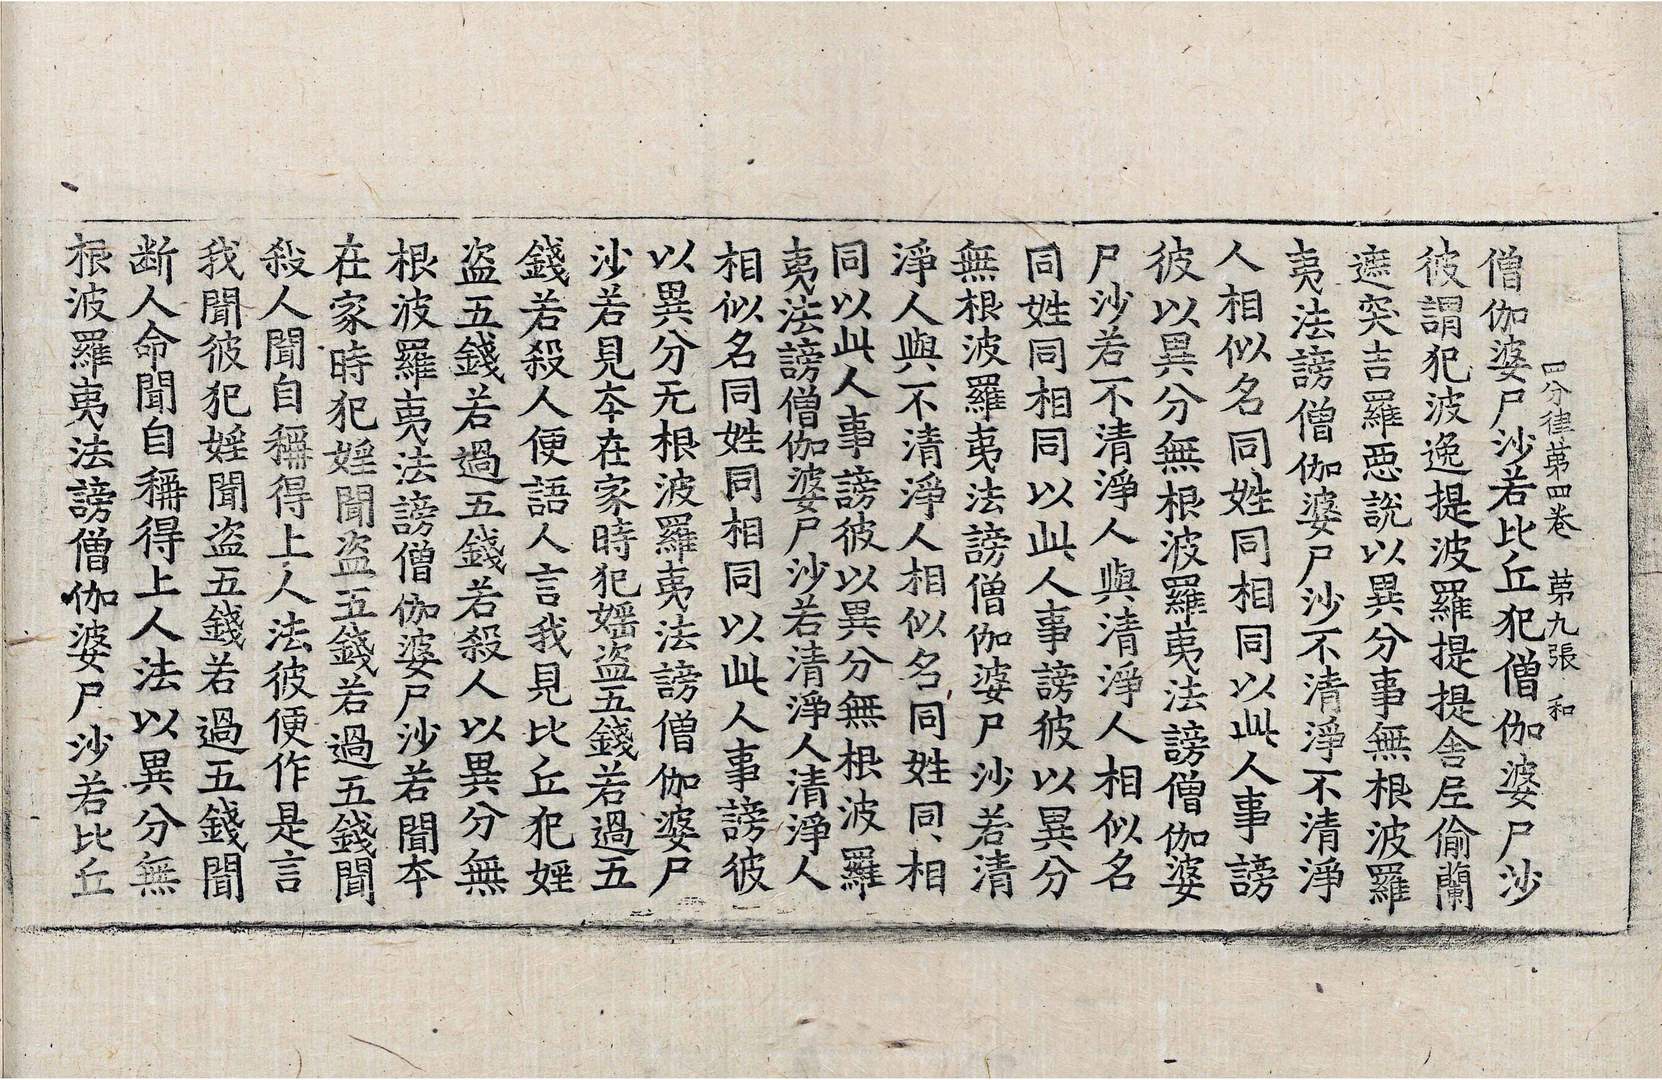 四分律苐四卷　苐九張　和
僧伽婆尸沙若比丘犯僧伽婆尸沙
彼謂犯波逸提波羅提提舍𡰱偷蘭
遮突吉羅惡說以異分事無根波羅
夷法謗僧伽婆尸沙不清淨不清淨
人相似名同姓同相同以此人事謗
彼以異分無根波羅夷法謗僧伽婆
尸沙若不清淨人與清淨人相似名
同姓同相同以此人事謗彼以異分
無根波羅夷法謗僧伽婆尸沙若清
淨人與不清淨人相似名同姓同相
同以此人事謗彼以異分無根波羅
夷法謗僧伽婆尸沙若清淨人清淨人
相似名同姓同相同以此人事謗彼
以異分无根波羅夷法謗僧伽婆尸
沙若見夲在家時犯婬盗五錢若過五
錢若殺人便語人言我見比丘犯婬
盗五錢若過五錢若殺人以異分無
根波羅夷法謗僧伽婆尸沙若聞夲
在家時犯婬聞盗五錢若過五錢聞
殺人聞自稱得上人法彼便作是言
我聞彼犯婬聞盗五錢若過五錢聞
断人命聞自稱得上人法以異分無
根波羅夷法謗僧伽婆尸沙若比丘